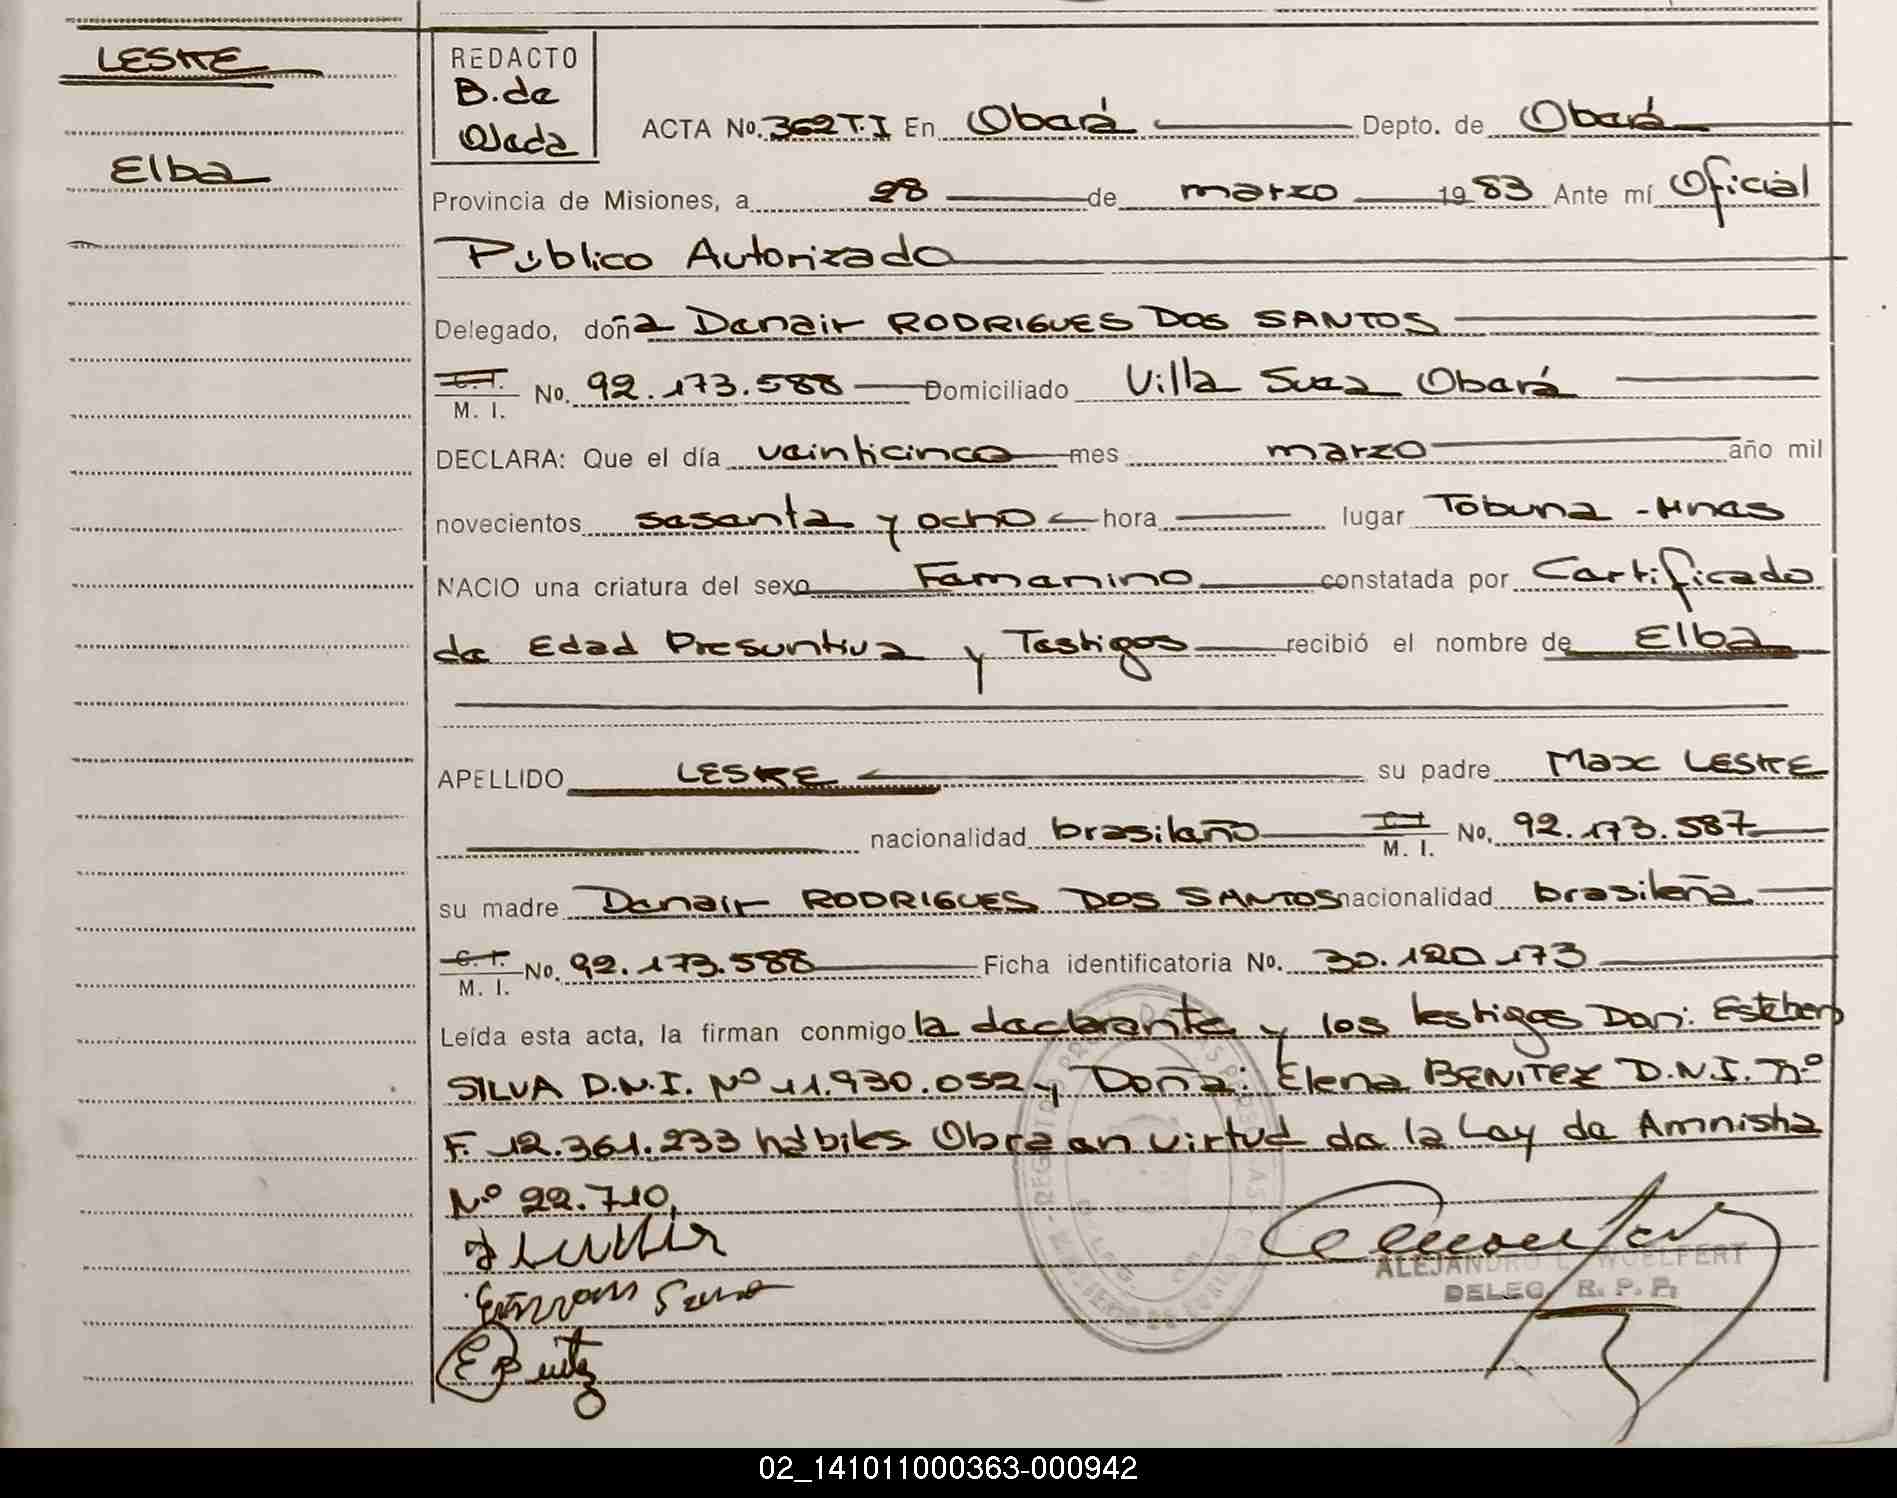 LESKE
Elba
REDACTO
B. de
Ojeda
ACTA No. 362 T.I En Oberá Depto. de Oberá
Provincia de Misiones, a 28 de marzo 1983 Ante mí Oficial
Público Autorizado
Delegado, doña Denair RODRIGUES DOS SANTOS
C.I.
M. I. No. 92.173.588 Domiciliado Villa Suea Oberá
DECLARA: Que el día veinticinco mes marzo año mil
novecientos sesenta y ocho hora lugar Tobuna - Mnes
NACIO una criatura del sexo Femenino constatada por Certificado
de Edad Presuntiva y Testigos recibió el nombre de Elba
APELLIDO LESKE su padre Max LESKE
nacionalidad brasileño C.I.
M. I. No. 92.173.587
su madre Denair RODRIGUES DOS SANTOS nacionalidad brasileña
C.I.
M. I. No. 92.173.588 Ficha identificatoria No. 30.120.173
Leída esta acta, la firman conmigo la declarante y los testigos Don: Esteban
SILVA D.N.I. Nº 11.930.052 y Doña: Elena BENITEZ D.N.I. nº
F. 12.361.233 hábiles Obra en virtud de la Ley de Amnistia
Nº 22.710,
E Benitez
ALEJANDRO L. WOELFERT
DELEG. R. P. P.
02_141011000363-000942